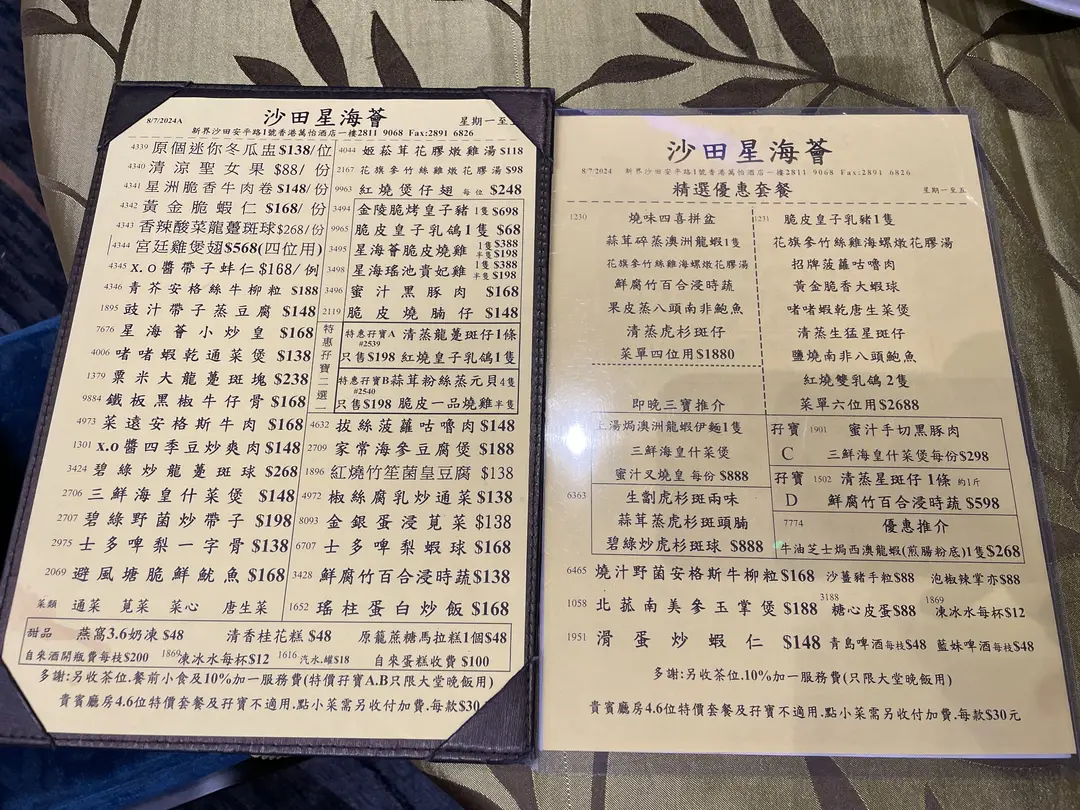 8/7/2024A 沙田星海薈 星期一至五
新界沙田安平路1號香港萬怡酒店一樓2811 9068 Fax:2891 6826
4339 原個迷你冬瓜盅$138/位
4340 清涼聖女果 $88/ 份
4341 星洲脆香牛肉卷 $148/ 份
4342 黃金脆蝦仁 $168/ 份
4343 香辣酸菜龍躉斑球$268/份
4344 宮廷雞煲翅$568(四位用)
4345 x.o醬帶子蚌仁 $168/ 例
4346 青芥安格絲牛柳粒 $188
1895 豉汁帶子蒸豆腐 $148
7676 星海薈小炒皇 $168
4006 啫啫蝦乾通菜煲 $138
1379 粟米大龍躉斑塊 $238
9884 鐵板黑椒牛仔骨 $168
4973 菜遠安格斯牛肉 $168
1301 x.o醬四季豆炒爽肉 $148
3424 碧綠炒龍躉斑球 $268
2706 三鮮海皇什菜煲 $148
2707 碧綠野菌炒帶子 $198
2975 士多啤梨一字骨 $138
2069 避風塘脆鮮魷魚 $168
菜類 通菜 莧菜 菜心 唐生菜
4044 姬菘茸花膠燉雞湯 $118
2167 花旗參竹絲雞燉花膠湯 $98
9963 紅燒煲仔翅 每位 $248
3494 金陵脆烤皇子豬 1隻 $698
9965 脆皮皇子乳鴿 1隻 $68
3495 星海薈脆皮燒雞 1隻 $388 半隻 $198
3498 星海瑤池貴妃雞 1隻 $388 半隻 $198
3496 蜜汁黑豚肉 $168
2119 脆皮燒腩仔 $148
特惠孖寶二選一
特惠孖寶A 清蒸龍躉斑仔1條
#2539
只售$198 紅燒皇子乳鴿1隻
特惠孖寶B 蒜茸粉絲蒸元貝4隻
#2540
只售$198 脆皮一品燒雞半隻
4632 拔絲菠蘿咕嚕肉 $148
2709 家常海參豆腐煲 $188
1896 紅燒竹笙菌皇豆腐 $138
4972 椒絲腐乳炒通菜 $138
8093 金銀蛋浸莧菜 $138
6707 士多啤梨蝦球 $168
3428 鮮腐竹百合浸時蔬$138
1652 瑤柱蛋白炒飯 $168
甜品 燕窩3.6奶凍 $48 清香桂花糕 $48 原籠蔗糖馬拉糕1個$48
自來酒開瓶費每枝$200 1869凍冰水每杯$12 1616 汽水.罐$18 自來蛋糕收費 $100
多謝:另收茶位.餐前小食及10%加一服務費(特價孖寶A.B只限大堂晚飯用)
貴賓廳房4.6位特價套餐及孖寶不適用.點小菜需另收付加費.每款$30
沙田星海薈
8/7/2024 新界沙田安平路1號香港萬怡酒店一樓2811 9068 Fax:2891 6826
精選優惠套餐 星期一至五
1230 燒味四喜拼盆
蒜茸碎蒸澳洲龍蝦1隻
花旗參竹絲雞海螺燉花膠湯
鮮腐竹百合浸時蔬
果皮蒸八頭南非鮑魚
清蒸虎杉斑仔
菜單四位用$1880
1231 脆皮皇子乳豬1隻
花旗參竹絲雞海螺燉花膠湯
招牌菠蘿咕嚕肉
黃金脆香大蝦球
啫啫蝦乾唐生菜煲
清蒸生猛星斑仔
鹽燒南非八頭鮑魚
紅燒雙乳鴿 2隻
菜單六位用$2688
即晚三寶推介
上湯焗澳洲龍蝦伊麵1隻
三鮮海皇什菜煲
蜜汁叉燒皇 每份 $888
6363 生劏虎杉斑兩味
蒜茸蒸虎杉斑頭腩
碧綠炒虎杉斑球 $888
孖寶 1901 蜜汁手切黑豚肉
C 三鮮海皇什菜煲每份$298
孖寶 1502 清蒸星斑仔 1條 約1斤
D 鮮腐竹百合浸時蔬 $598
7774 優惠推介
牛油芝士焗西澳龍蝦(煎腸粉底)1隻$268
6465 燒汁野菌安格斯牛柳粒$168 沙薑豬手粒$88 泡椒辣掌亦$88
1058 北菰南美參玉掌煲 $188 3188 糖心皮蛋$88 1869 凍冰水每杯$12
1951 滑蛋炒蝦仁 $148 青島啤酒每枝$48 藍妹啤酒每枝$48
多謝:另收茶位.10%加一服務費(只限大堂晚飯用)
貴賓廳房4.6位特價套餐及孖寶不適用.點小菜需另收付加費.每款$30元